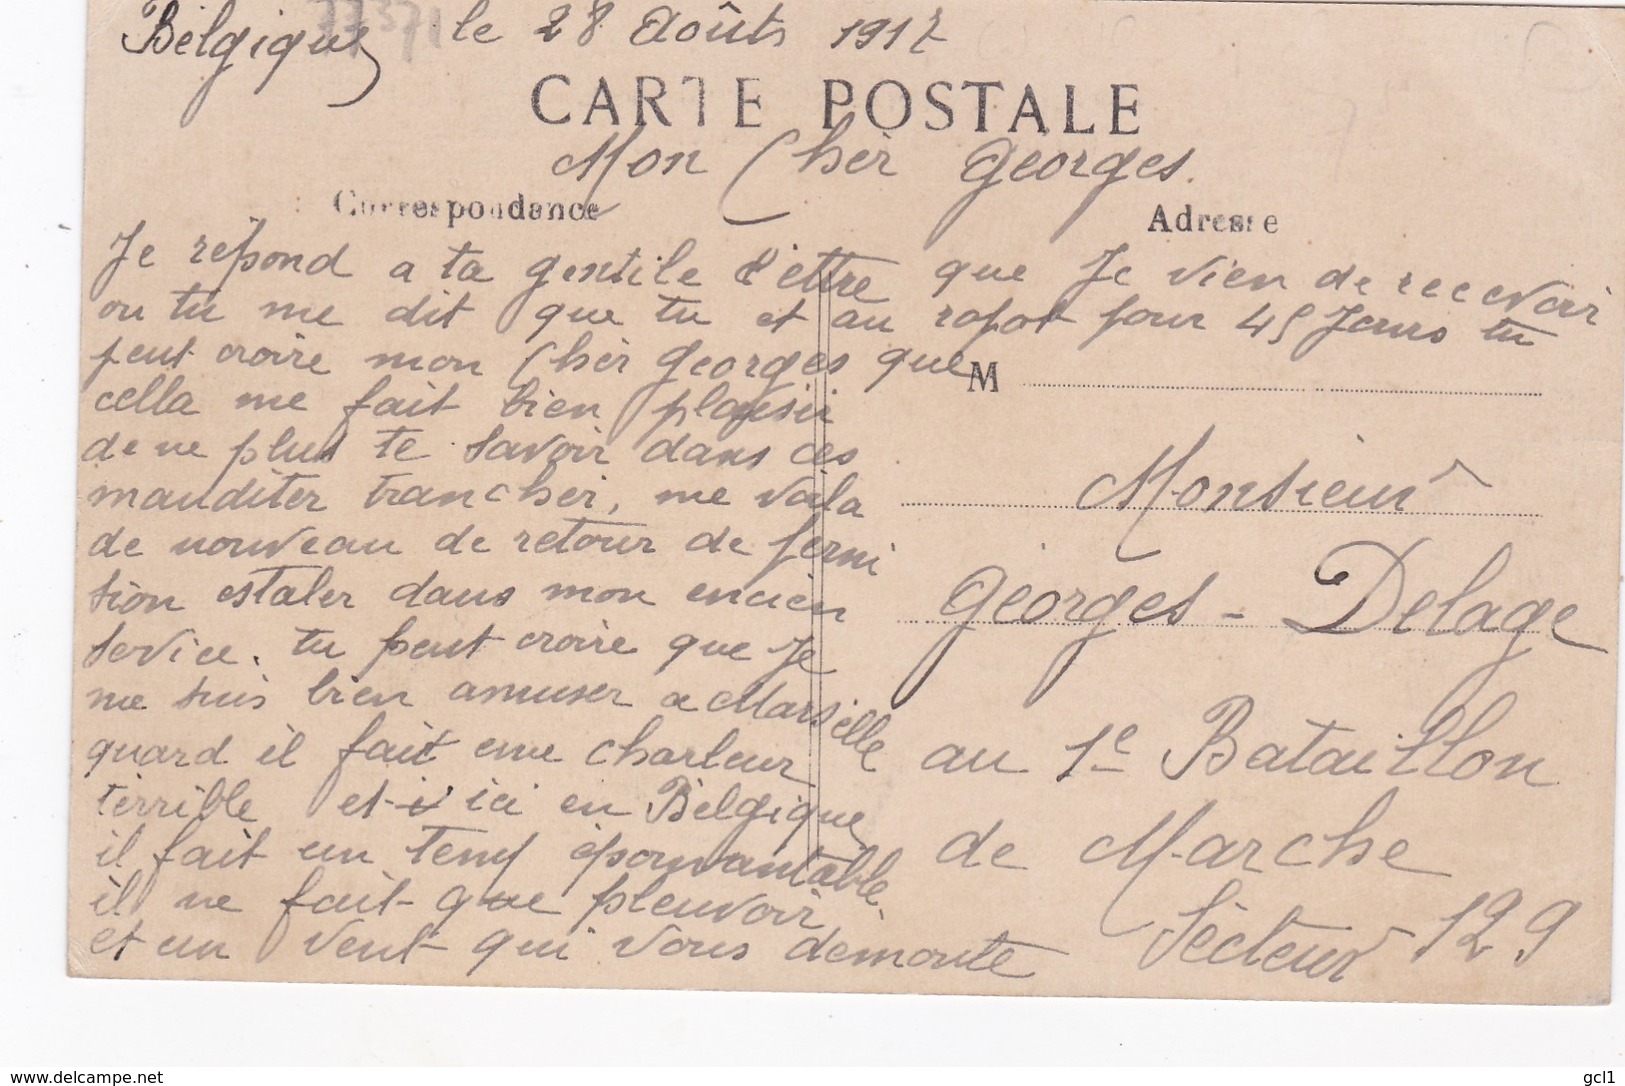 Bélgique le 28 Aoûts 1917
77371
CARTE POSTALE
Mon Chèr Georges.
Correspondance
Adresse
Je répond a ta gentile l'ettre que Je vien de recevoir
ou tu me dit que tu et au ropot pour 45 Jours tu
peut croire mon Chèr Georges que
M
cella me fait bien plaisir
de ne plus te savoir dans ces
mauditer trancher, me voila
de nouveau de retour de permi
sion estaler dans mon encien
service. tu peut croire que Je
me suis bien amuser a Marseille
quard il fait eme charleur
terrible et-i ici en Bélgique
il fait un temp épouvantable
il ne fait que pleuvoir
et un vent qui vous demonte
Monsieur
Géorges - Delage
au 1e Bataillon
de Marche
Sécteur 129
www.delcampe.net
gcl1